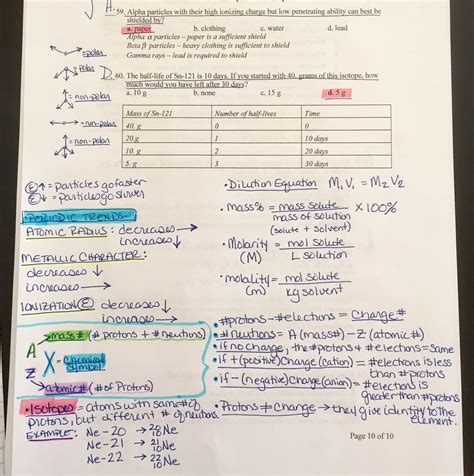 59. Alpha particles with their high ionizing charge but low penetrating ability can best be
shielded by?
a. paper b. clothing c. water d. lead
Alpha α particles – paper is a sufficient shield
Beta β particles – heavy clothing is sufficient to shield
Gamma rays – lead is required to shield
D 60. The half-life of Sn-121 is 10 days. If you started with 40. grams of this isotope, how
much would you have left after 30 days?
a. 10 g b. none c. 15 g d. 5 g
Mass of Sn-121 Number of half-lives Time
40. g 0 0
20.g 1 10 days
10. g 2 20 days
5. g 3 30 days
= polar
= polar
= non-polar
= non-polar
= non-polar
E↑ = particles go faster
E↓ = particles go slower
• PERIODIC TRENDS •
ATOMIC RADIUS: decreases →
increases ↓
METALLIC CHARACTER:
decreases ↓
increases →
IONIZATION E decreases ↓
increases →
A → mass # (# protons + # neutrons)
X - chemical symbol
Z → atomic # (# of Protons)
• Isotopes = atoms with same # of
protons, but different # of neutrons.
EXAMPLE: Ne-20 → 20 10 Ne
Ne-21 → 21 10 Ne
Ne-22 → 22 10 Ne
• Dilution Equation M₁V₁ = M₂V₂
• mass% = mass solute / mass of solution x 100%
(solute + solvent)
• Molarity (M) = mol solute / L solution
• molality (m) = mol solute / kg solvent
• #protons - #electrons = charge #
• # neutrons = A (mass#) - Z (atomic #)
• if no charge, the # protons + # electrons = same
• if + (positive) charge (cation) = # electrons is less
than # protons
• if - (negative) charge (anion) = # electrons is
greater than # protons
• Protons ≠ Change → they give identity to the
element.
Page 10 of 10